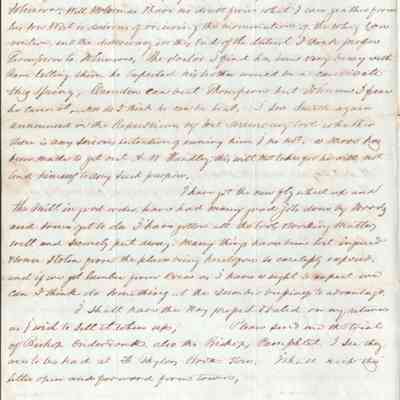 I have no doubt from what I can gather from
his Son West is desirous of receiving the nomination of the Whig Con
vention, but the democracy in this end of the District I think prefers
Thompson to Whitmore, The doctor I find has been very busy with
them letting them he expected his brother would be a candidate
this Spring, can beat Thompson but Whitmore I fear
he cannot, nor do I think he can be beat. I see Smith again
announced in the Republican of but whether
there is any serious intention of running him I no not. a move has
been made to get out A. W. Handley this will not take for he will not
lend himself to any such purpose.
I have got the new fly wheel up and
the Mill in good order, have had many good jobs done by Moody
and some yet to do I have gotten all the tools working
well and Securely put away, Many things have been lost injured
& some Stolen from the place being heretofore so carelessly exposed.
and if we get lumber from as I have a right to expect we
can I think do something at the business to advantage.
I shall have the Hay pressed & baled on my return
as I wish to sell it when up, Please send me the trial
of Bishop Onderdonk also the Bishops Pamphlet I see they
are to be had at Book Store. I shall keep this
letter open and forward from town,